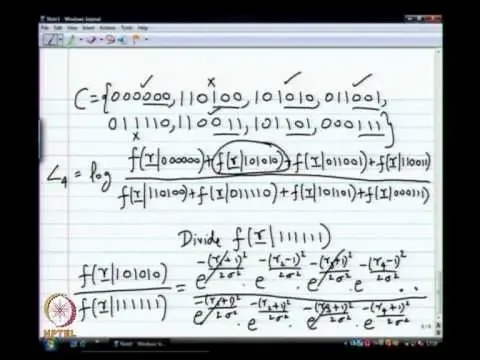 Note1 - Windows Journal
C = {000000, 110100, 101010, 011001,
011110, 110011, 101101, 000111}
L₄ = log f(r|000000)+f(r|101010)+f(r|011001)+f(r|110011)
f(r|110100)+f(r|011110)+f(r|101101)+f(r|000111)
Divide f(r|111111)
f(r|101010) / f(r|111111) = e^{-(r₁+1)²/2σ²} · e^{-(r₂-1)²/2σ²} · e^{-(r₃+1)²/2σ²} · e^{-(r₄-1)²/2σ²} ..
e^{-(r₁+1)²/2σ²} · e^{-(r₂+1)²/2σ²} · e^{-(r₃+1)²/2σ²} · e^{-(r₄+1)²/2σ²}
NPTEL